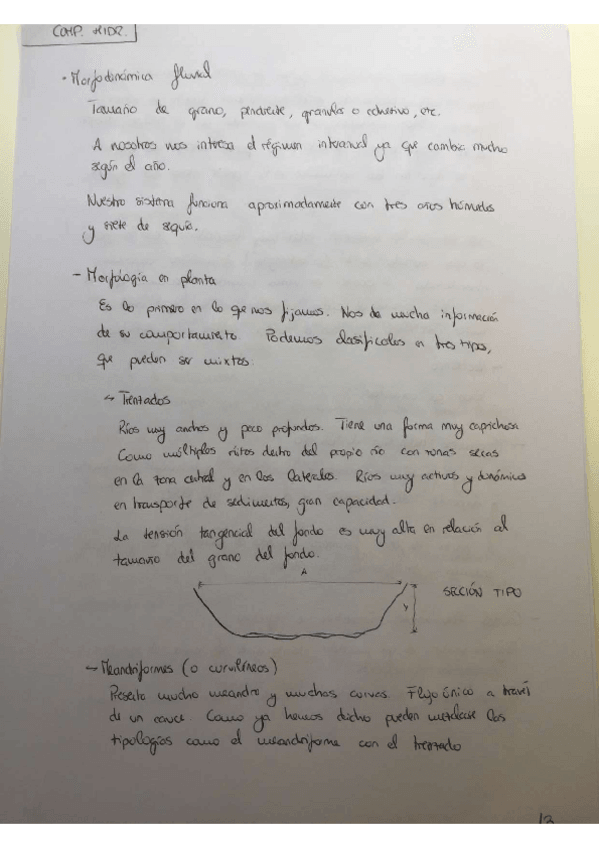 COMP. HIDR.
· Morfodinámica fluvial
Tamaño de grano, pendiente, granular o cohesivo, etc.
A nosotros nos interesa el régimen interanual ya que cambia mucho
según el año.
Nuestro sistema funciona aproximadamente con tres años húmedos
y siete de sequía.
- Morfología en planta
Es lo primero en lo que nos fijamos. Nos da mucha información
de su comportamiento. Podemos clasificarlos en tres tipos,
que pueden ser mixtos.
↳ Trentados
Ríos muy anchos y poco profundos. Tiene una forma muy caprichosa
Como múltiples ríitos dentro del propio río con zonas secas
en la zona central y en los laterales. Ríos muy activos y dinámicos
en transporte de sedimentos, gran capacidad.
La tensión tangencial del fondo es muy alta en relación al
tamaño del grano del fondo.
A
y
SECIÓN TIPO
- Meandriformes (o curvilíneos)
Presenta mucho meandro y muchas curvas. Flujo único a través
de un cauce. Como ya hemos dicho pueden mezclarse las
tipologías como el meandriforme con el trentado
13